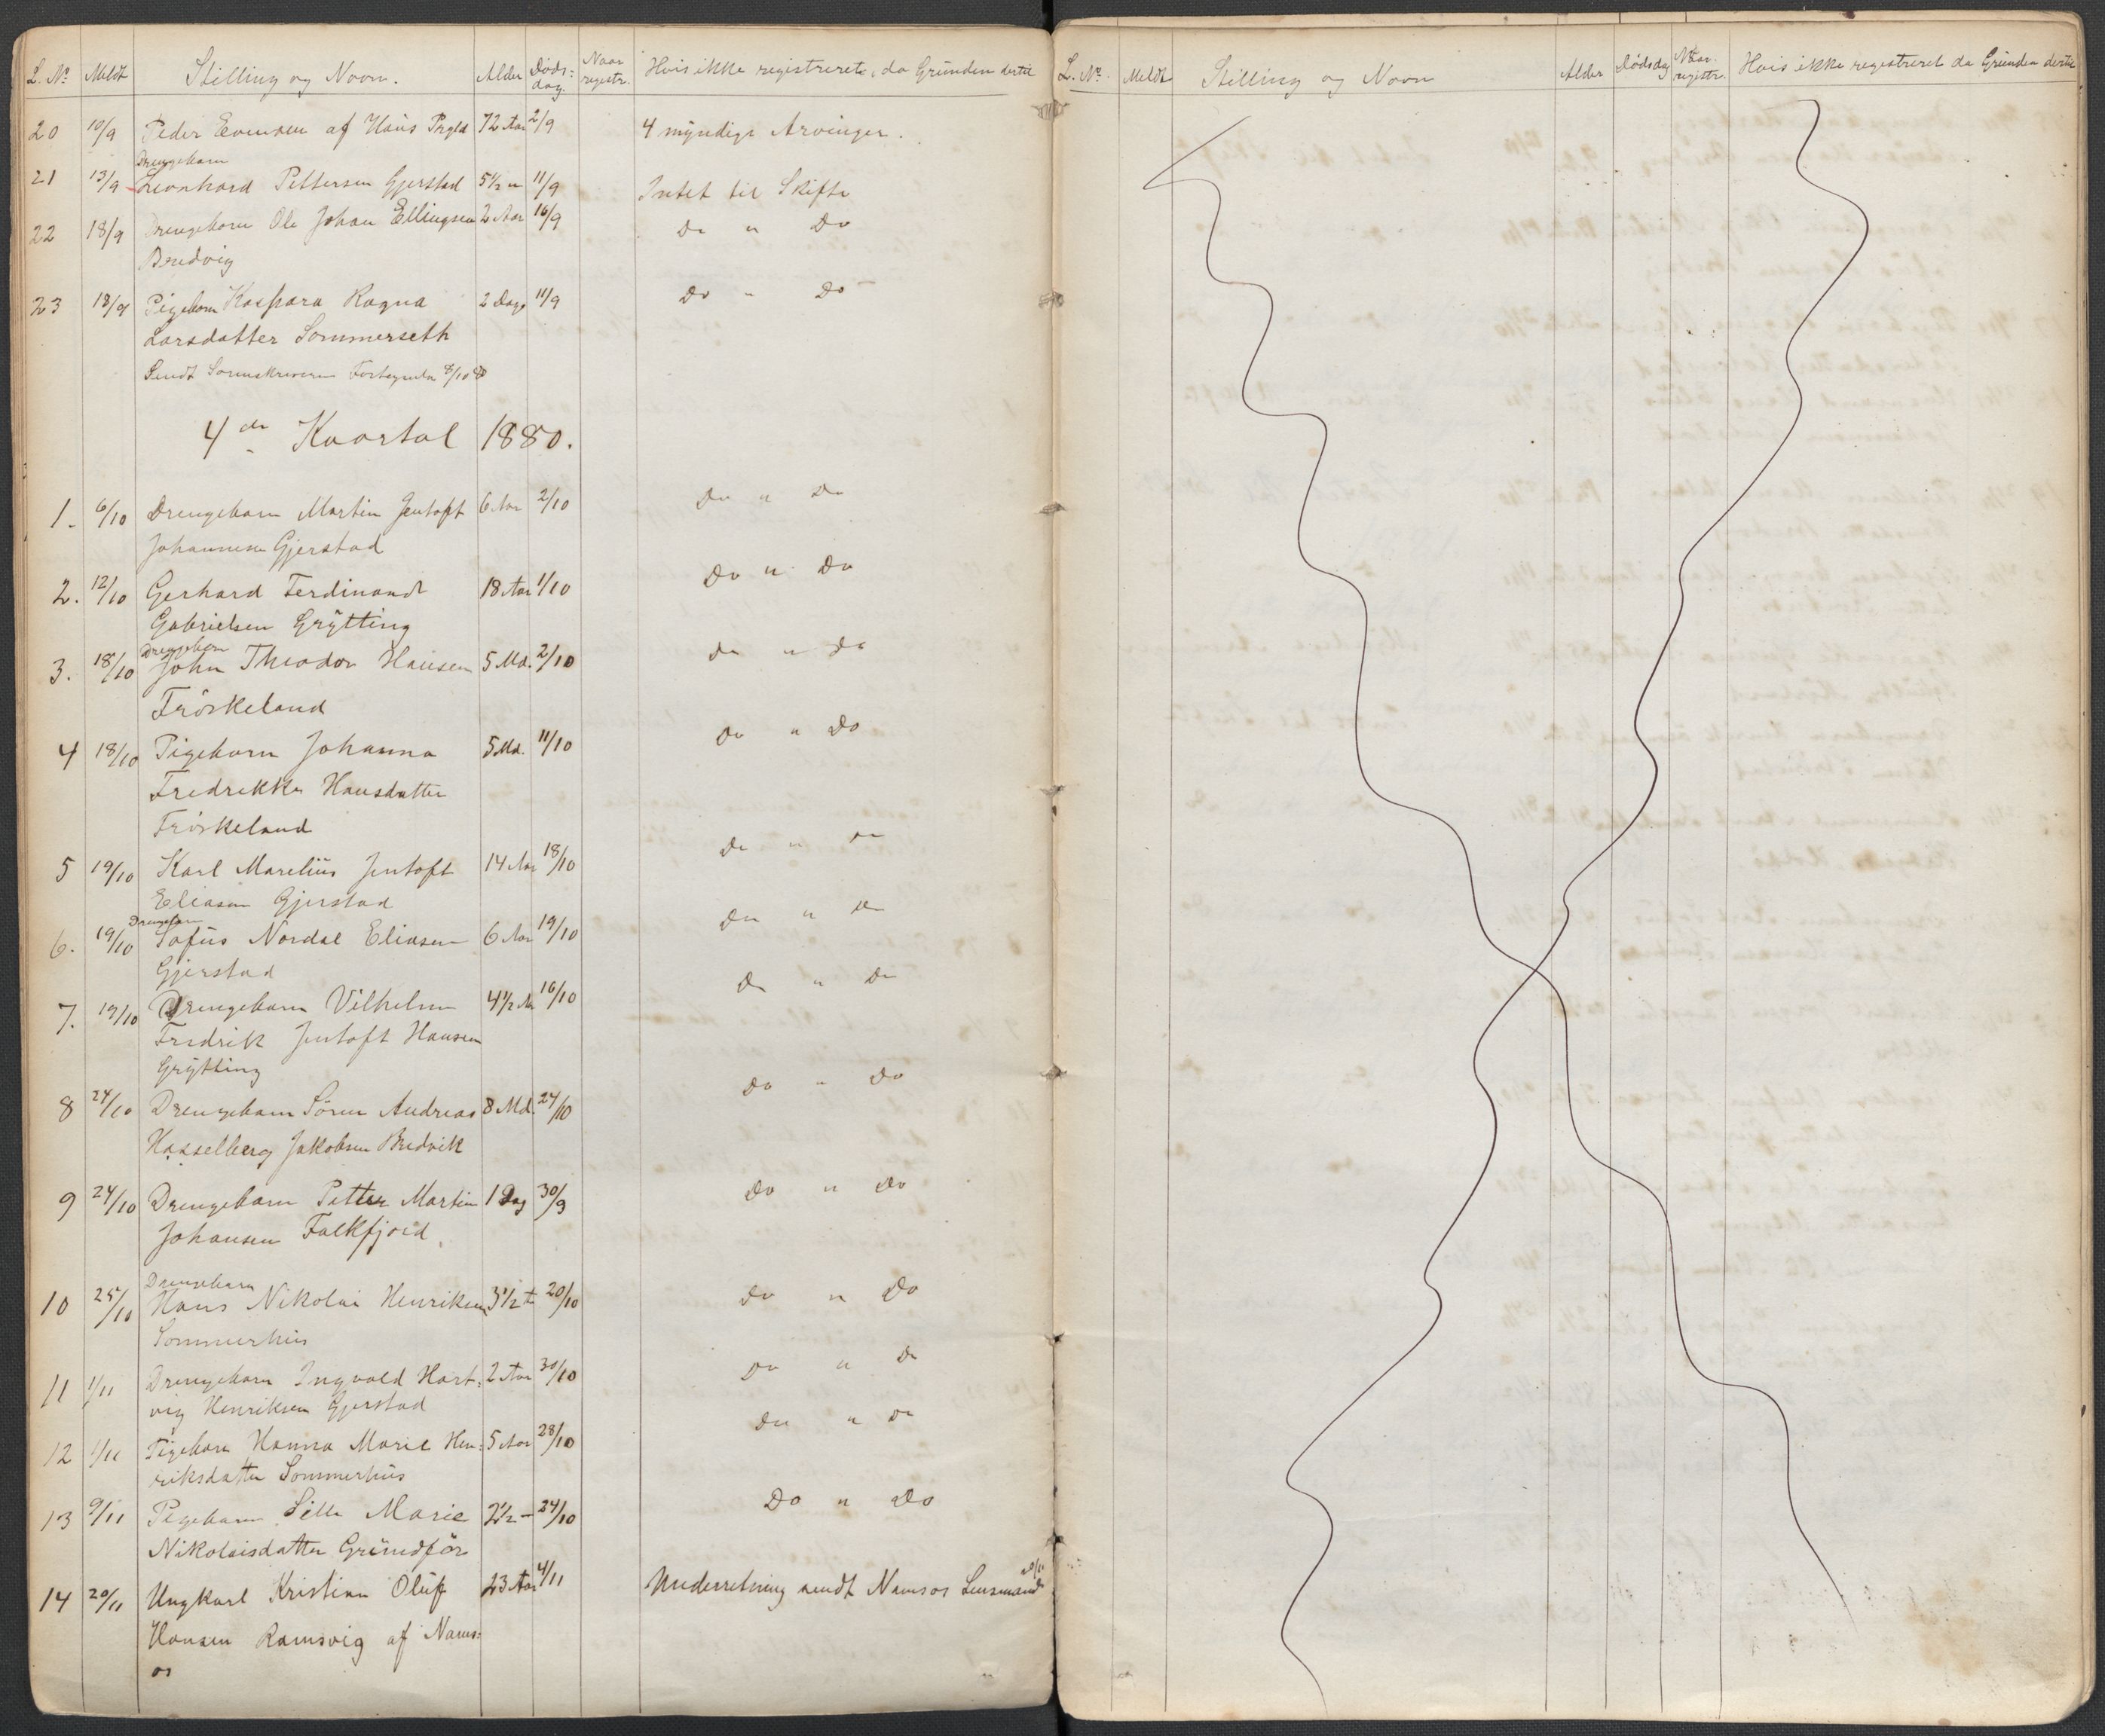 L. No Meldt Stilling og Navn. Alder Døds: dag. Naar registr. Hvis ikke registreret, da Grunden dertil
20 10/9 Peder Evensen af Haüs Prgld 72 Aar 2/9 4 myndige Arvinger.
Drengebarn
21 13/9 Leonhard Pettersen Gjerstad 5 1/2 " 11/9 Intet til Skifte
22 18/9 Drengebarn Ole Johan Ellingsen 2 Aar 16/9 Do " Do
Bredvig
23 18/9 Pigebarn Kaspara Ragna 2 Dage 11/9 Do " Do
Larsdatter Sommerseth
Sendt Sorenskriveren Fortegnelse 8/10 80
4de Kvartal 1880.
1. 6/10 Drengebarn Martin Jentoft 6 Aar 2/10 Do " Do
Johannesen Gjerstad
2. 12/10 Gerhard Ferdinand 18 Aar 1/10 Do " Do
Gabrielsen Grÿtting
Drengebarn
3. 18/10 John Theodor Hansen 5 Md. 2/10 Do " Do
Frøskeland
4 18/10 Pigebarn Johanna 5 Md. 11/10 Do " Do
Fredrikke Hansdatter
Frøskeland
5 19/10 Karl Mareliüs Jentoft 14 Aar 18/10 Do " Do
Eliasen Gjerstad
Drengebarn
6. 19/10 Sofüs Nordal Eliasen 6 Aar 19/10 Do " Do
Gjerstad
7. 19/10 Drengebarn Vilhelm 4 1/2 Aar 16/10 Do " Do
Fredrik Jentoft Hansen
Grÿtting
8 24/10 Drengebarn Sören Andreas 8 Md. 24/10 Do " Do
Hasselberg Jakobsen Bredvik
9 24/10 Drengebarn Petter Martin 1 Dag 30/9 Do " Do
Johansen Falkfjord
Drengebarn
10 25/10 Hans Nikolai Henriksen 3 1/2 " 20/10 Do " Do
Sommerhüs
11 1/11 Drengebarn Ingvald Hart: 2 Aar 30/10 Do " Do
vig Henriksen Gjerstad
12 1/11 Pigebarn Hanna Marie Hen: 5 Aar 28/10 Do " Do
riksdatter Sommerhüs
13 9/11 Pigebarn Sille Marie 2 1/2 — 24/10 Do " Do
Nikolaisdatter Gründför
14 20/11 Ungkarl Kristian Olüf 23 Aar 4/11 Underretning sendt Namsos Lensmand 20/11
Hansen Ramsvig af Nams:
os
L. No. Meldt Stilling og Navn Alder Dødsdag Naar registr. Hvis ikke registreret da Grunden dertil